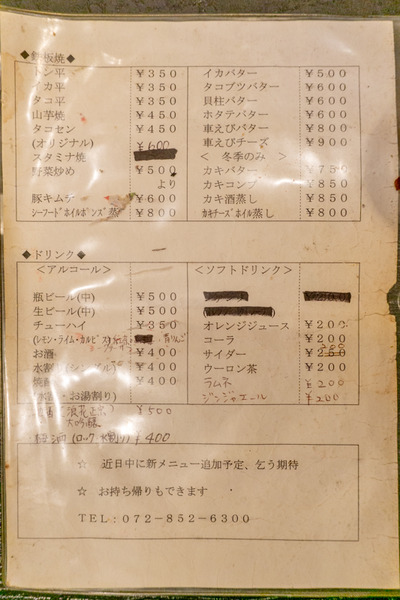 ◆鉄板焼◆
トン平 ￥350
イカ平 ￥350
タコ平 ￥350
山芋焼 ￥450
タコセン ￥450
(オリジナル) ￥600
スタミナ焼
野菜炒め ￥500
より
豚キムチ ￥600
シーフードホイルポンズ蒸 ￥800
イカバター ￥500
タコブツバター ￥600
貝柱バター ￥600
ホタテバター ￥600
車えびバター ￥800
車えびチーズ ￥900
＜ 冬季のみ ＞
カキバター ￥750
カキコンブ ￥850
カキ酒蒸し ￥850
カキチーズホイル蒸し ￥800
◆ドリンク◆
＜アルコール＞
瓶ビール(中) ￥500
生ビール(中) ￥500
チューハイ ￥350
(レモン・ライム・カルピス)
お酒 ￥400
水割り(シングル) ￥400
焼酎 ￥400
(水割・お湯割り)
浪花正宗 ￥500
大吟醸
(ロック 水割り) ￥400
＜ソフトドリンク＞
オレンジジュース ￥200
コーラ ￥200
サイダー ￥250
ウーロン茶 ￥200
ラムネ ￥200
ジンジャエール ￥200
☆ 近日中に新メニュー追加予定、乞う期待
☆ お持ち帰りもできます
TEL：072－852－6300